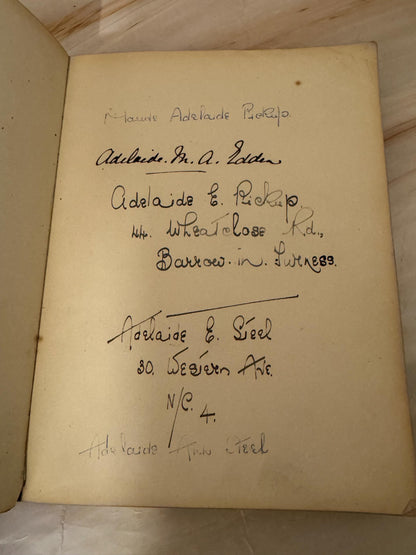 Maude Adelaide Pickup.
Adelaide. M. A. Edden
Adelaide E. Pickup,
44. Wheatclose Rd.,
Barrow. in. Furness.
Adelaide E. Steel
30. Western Ave.
N/C. 4.
Adelaide Ann Steel